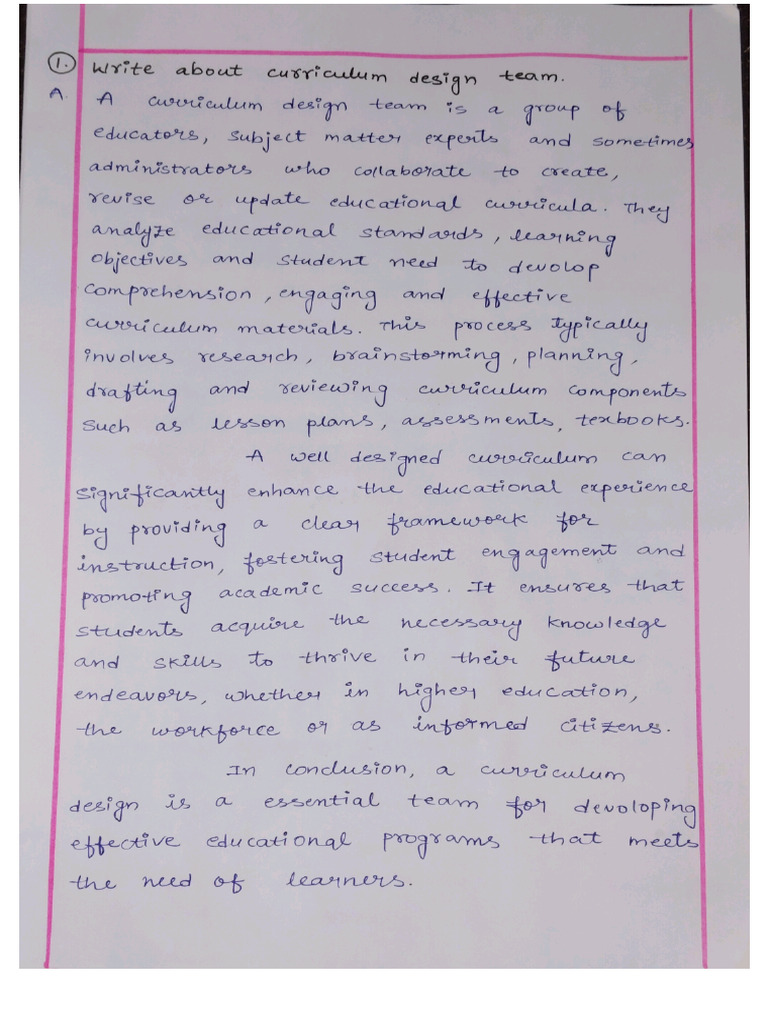 1. Write about curriculum design team.
A. A curriculum design team is a group of
educators, subject matter experts and sometimes
administrators who collaborate to create,
revise or update educational curricula. They
analyze educational standards, learning
objectives and student need to devolop
comprehension, engaging and effective
curriculum materials. This process typically
involves research, brainstorming, planning,
drafting and reviewing curriculum components
such as lesson plans, assessments, texbooks.
A well designed curriculum can
significantly enhance the educational experience
by providing a clear framework for
instruction, fostering student engagement and
promoting academic success. It ensures that
students acquire the necessary knowledge
and skills to thrive in their future
endeavors, whether in higher education,
the workforce or as informed citizens.
In conclusion, a curriculum
design is a essential team for devoloping
effective educational programs that meets
the need of learners.